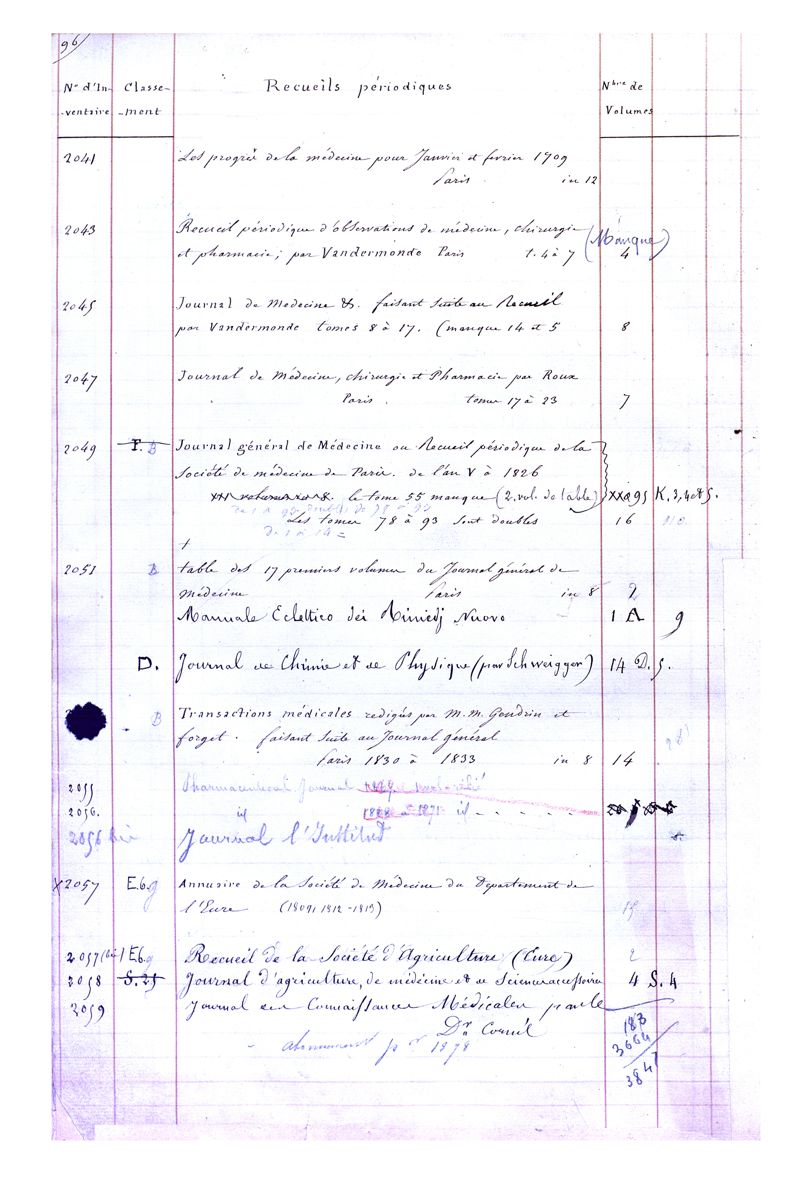 96
N° d'In- Classe- Recueils périodiques Nbre de
ventaire -ment Volumes
2041 Les progrès de la médecine pour Janvier et fevrier 1709
Paris in 12
2043 Recueil périodique d'observations de médecine, chirurgie (Manque)
et pharmacie; par Vandermonde Paris t. 4 à 7 4
2045 Journal de Medecine &. faisant Suite au Recueil
par Vandermonde tomes 8 à 17. (manque 14 et 5 8
2047 Journal de Médecine, chirurgie et Pharmacie par Roux
Paris tomes 17 à 23 7
2049 F. B Journal général de Médecine ou Recueil périodique de la
Société de médecine de Paris. de l'an V à 1826
le tome 55 manque (2. vol. de table) 95 K. 3, 4 et 5.
Les tomes 78 à 93 sont doubles 16
2051 B table des 17 premiers volumes du Journal général de
Médecine Paris in 8 2
Manuale Eclettico dei Rimedj Nuovo 1 A 9
D. Journal de Chimie et de Physique (par Schweigger) 14 D. 5.
B Transactions médicales redigés par M. M. Gendrin et
forget. faisant Suite au Journal général
Paris 1830 à 1833 in 8 14
2055 Pharmaceutical Journal
2056. id 1871 id
2056 bis Journal l'Institut
X2057 E.6.9 Annuaire de la Société de Medecine du Departement de
l'Eure (1809, 1812-1819) 15
2057 (bis) E.6.9 Recueil de la Société d'Agriculture (Eure) 2
2058 S. 25 Journal d'agriculture, de médecine et de Sciences accessoires 4 S. 4
2059 Journal des Connaissances Médicales par le
Dr Cornil
- abonnement pr 1878
183
3664
3847